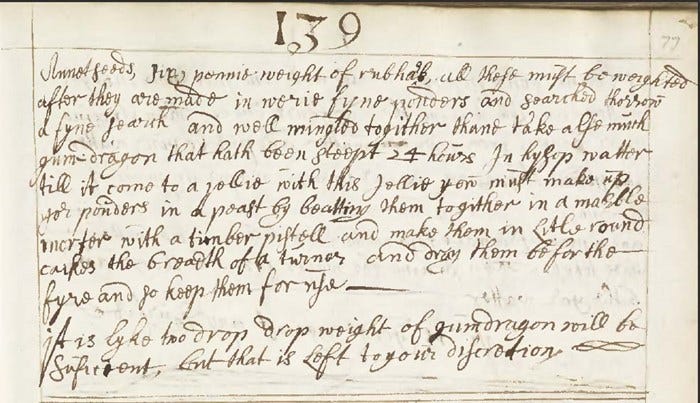 139
77
Annetseeds, six pennie weight of rubhab, all these must be weighted
after they are made in verie fyne pouders and searched thorrow
a fyne search and well mingled togither thane take alse much
gum dragon that hath been steept 24 hours In hysop watter
till it come to a jellie with this Jellie yow must make up
yor pouders in a peast by beatting them togither in a marble
morter with a timber pistell and make them in litle round
caikes the breadth of a turner and dray them befor the
fyre and so keep them for use
it is lyke two drop drop weight of gumdragon will be
Suficient, but that is left to your discretion